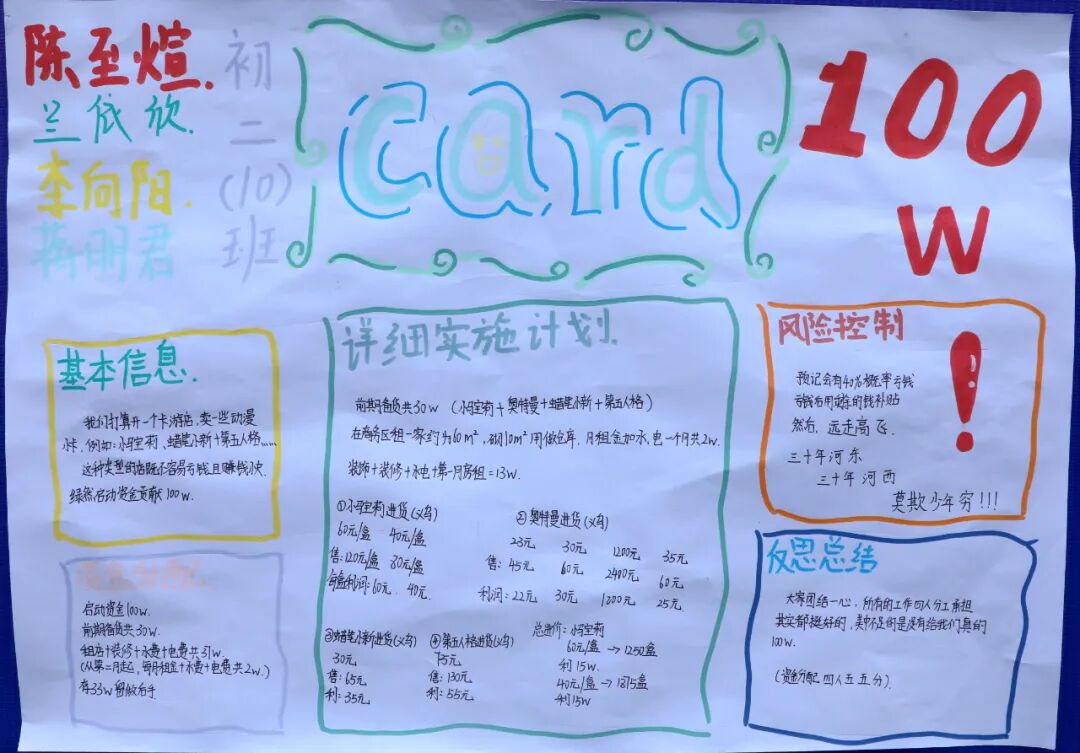 陈至煊.
兰依欣.
李向阳.
蒋明君
初二(10)班
card
100
W
基本信息.
我们打算开一个卡游店,卖一些动漫
卡,例如:小马宝莉、蜡笔小新+第五人格……
这种类型的店既不容易亏钱且赚钱快
启动资金贡献100w.
启动资金100w.
前期备货共30w.
租店+装修+水费+电费共37w.
(从第二月起,每月租金+水费+电费共2w.)
有33w留做右手
详细实施计划.
前期备货共30w (小马宝莉+奥特曼+蜡笔小新+第五人格)
在商务区租一家约为60m²,砌10m²用做仓库,月租金加水,电一个月共2w.
装饰+装修+水电+第一月房租=13w.
①小马宝莉进货(义乌)
60元/盒 40元/盒
售:120元/盒 80元/盒
每盒利润:60元. 40元.
②奥特曼进货(义乌)
23元 30元 1200元 35元
售:45元 60元 2400元 60元
利润:22元 30元 1200元 25元.
③蜡笔小新进货(义乌)
30元
售:65元
利:35元
④第五人格进货(义乌)
75元
售:130元
利:55元
总造价:小马宝莉
60元/盒→1250盒
利15w.
40元/盒→1875盒
利15w
风险控制
预记会有40%概率亏钱
亏钱右用 的钱补贴
然后,远走高飞.
三十年河东
三十年河西
莫欺少年穷!!!
!
反思总结
大家团结一心,所有的工作四人分工承担
其实都挺好的,美中不足的是没有给我们真的
100w.
(资金分配四人五五分).